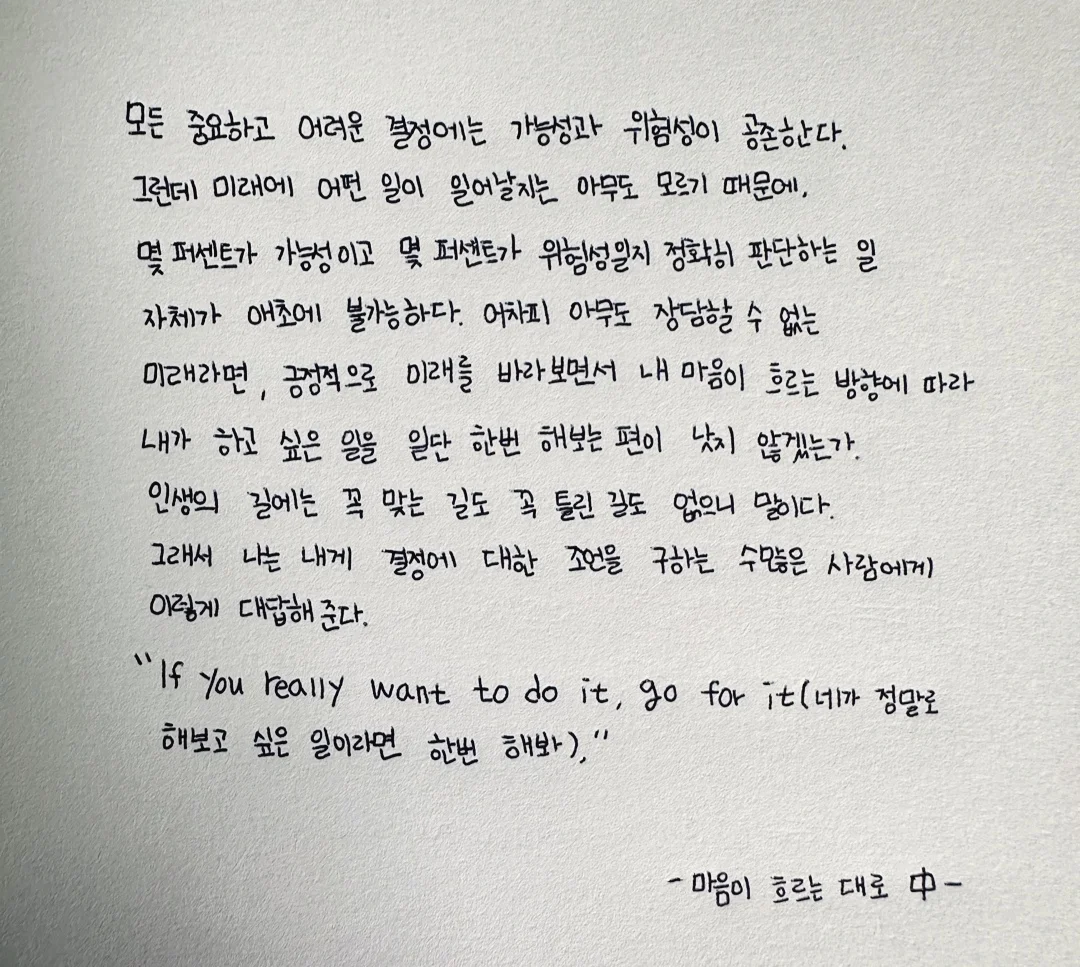 모든 중요하고 어려운 결정에는 가능성과 위험성이 공존한다.
그런데 미래에 어떤 일이 일어날지는 아무도 모르기 때문에,
몇 퍼센트가 가능성이고 몇 퍼센트가 위험성일지 정확히 판단하는 일
자체가 애초에 불가능하다. 어차피 아무도 장담할 수 없는
미래라면, 긍정적으로 미래를 바라보면서 내 마음이 흐르는 방향에 따라
내가 하고 싶은 일을 일단 한번 해보는 편이 낫지 않겠는가.
인생의 길에는 꼭 맞는 길도 꼭 틀린 길도 없으니 말이다.
그래서 나는 내게 결정에 대한 조언을 구하는 수많은 사람에게
이렇게 대답해 준다.
"If you really want to do it, go for it(네가 정말로
해보고 싶은 일이라면 한번 해봐)."
- 마음이 흐르는 대로 中 -